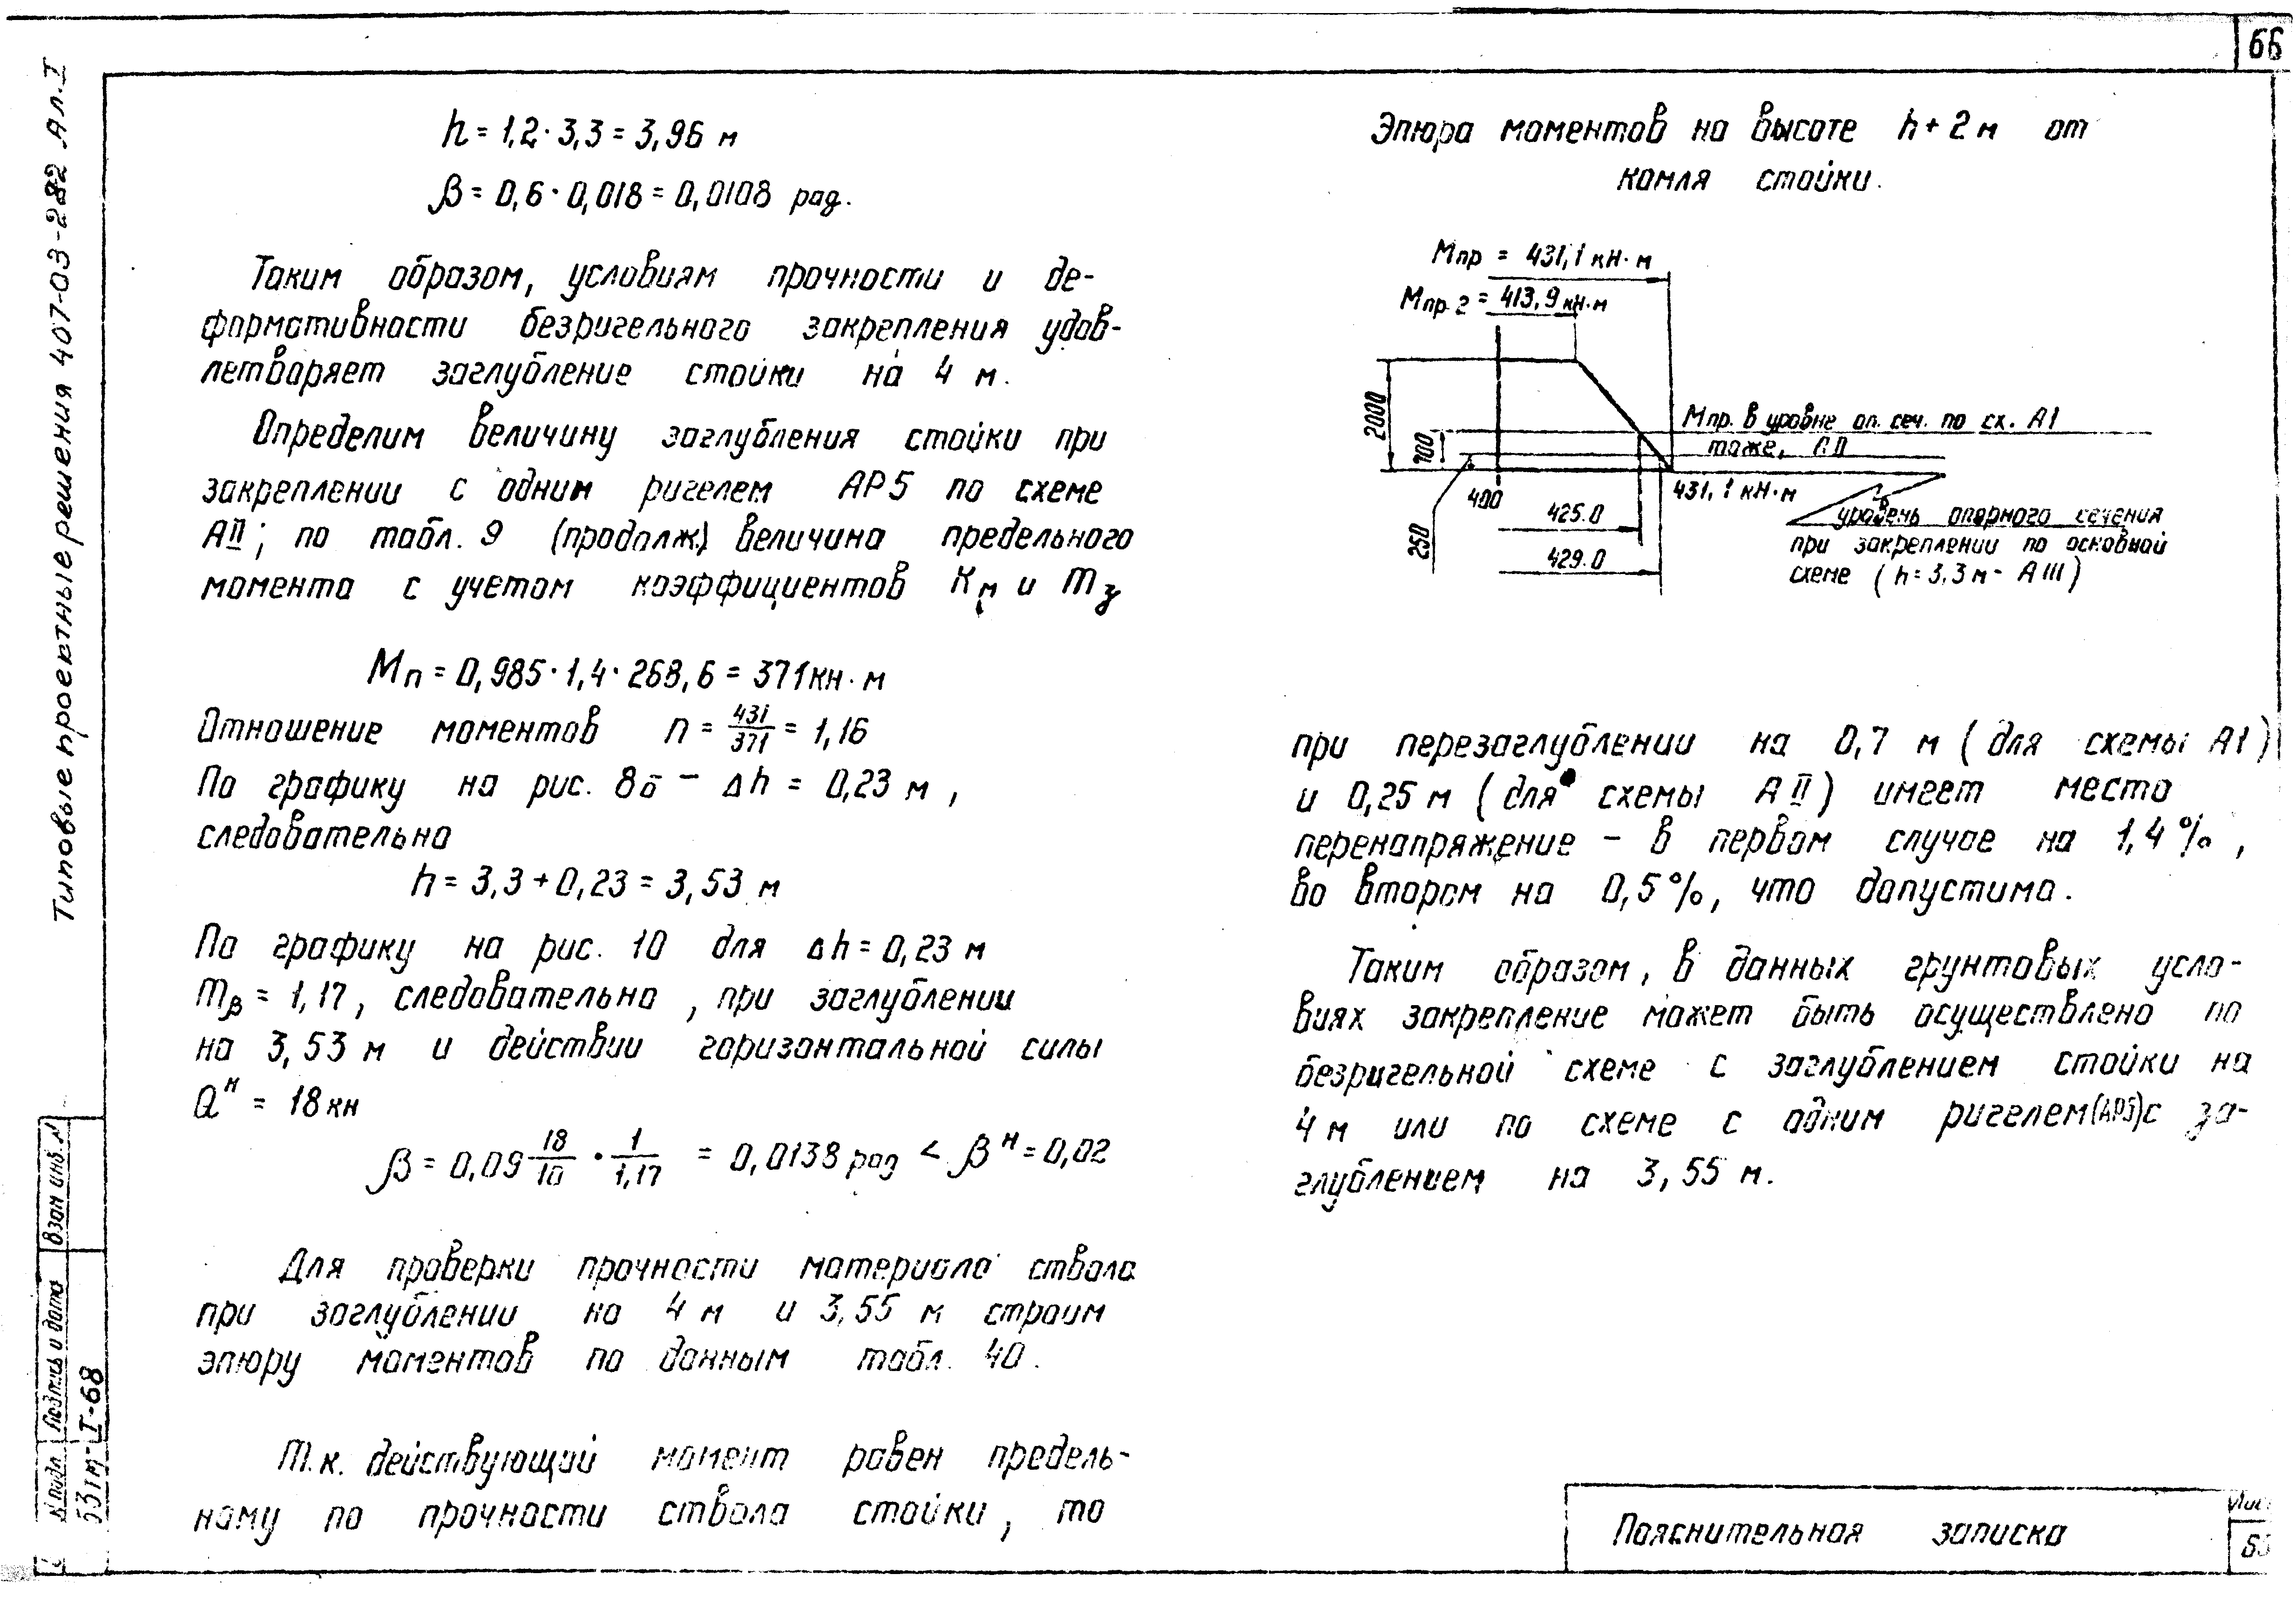 66
Типовые проектные решения 407-03-282 Ал. I
h = 1,2 · 3,3 = 3,96 м
β = 0,6 · 0,018 = 0,0108 рад.
Таким образом, условиям прочности и де-
формативности безригельного закрепления удов-
летворяет заглубление стойки на 4 м.
Определим величину заглубления стойки при
закреплении с одним ригелем АР5 по схеме
АII; по табл. 9 (продолж.) величина предельного
момента с учетом коэффициентов Kм и mз
Mп = 0,985 · 1,4 · 268,6 = 371 кн · м
Отношение моментов n = 431/371 = 1,16
По графику на рис. 8б – Δh = 0,23 м,
следовательно
h = 3,3 + 0,23 = 3,53 м
По графику на рис. 10 для Δh = 0,23 м
mβ = 1,17, следовательно, при заглублении
на 3,53 м и действии горизонтальной силы
Qн = 18 кн
β = 0,09 18/10 · 1/1,17 = 0,0138 рад < βн = 0,02
Для проверки прочности материала ствола
при заглублении на 4 м и 3,55 м строим
эпюру моментов по данным табл. 40.
Т.к. действующий момент равен предель-
ному по прочности ствола стойки, то
Эпюра моментов на высоте h + 2 м от
комля стойки.
Mпр = 431,1 кН · м
Mпр.2 = 413,9 кн·м
2000
700
250
400
425.0
429.0
Mпр. в уровне оп. сеч. по сх. АI
тоже, АII
431,1 кН·м
уровень опорного сечения
при закреплении по основной
схеме (h = 3,3 м - АIII)
при перезаглублении на 0,7 м (для схемы АI)
и 0,25 м (для схемы АII) имеет место
перенапряжение – в первом случае на 1,4 %,
во втором на 0,5 %, что допустимо.
Таким образом, в данных грунтовых усло-
виях закрепление может быть осуществлено по
безригельной схеме с заглублением стойки на
4 м или по схеме с одним ригелем (АР5) с за-
глублением на 3,55 м.
Взам инв. N
Подпись и дата
N подл
531м-I-68
Пояснительная записка